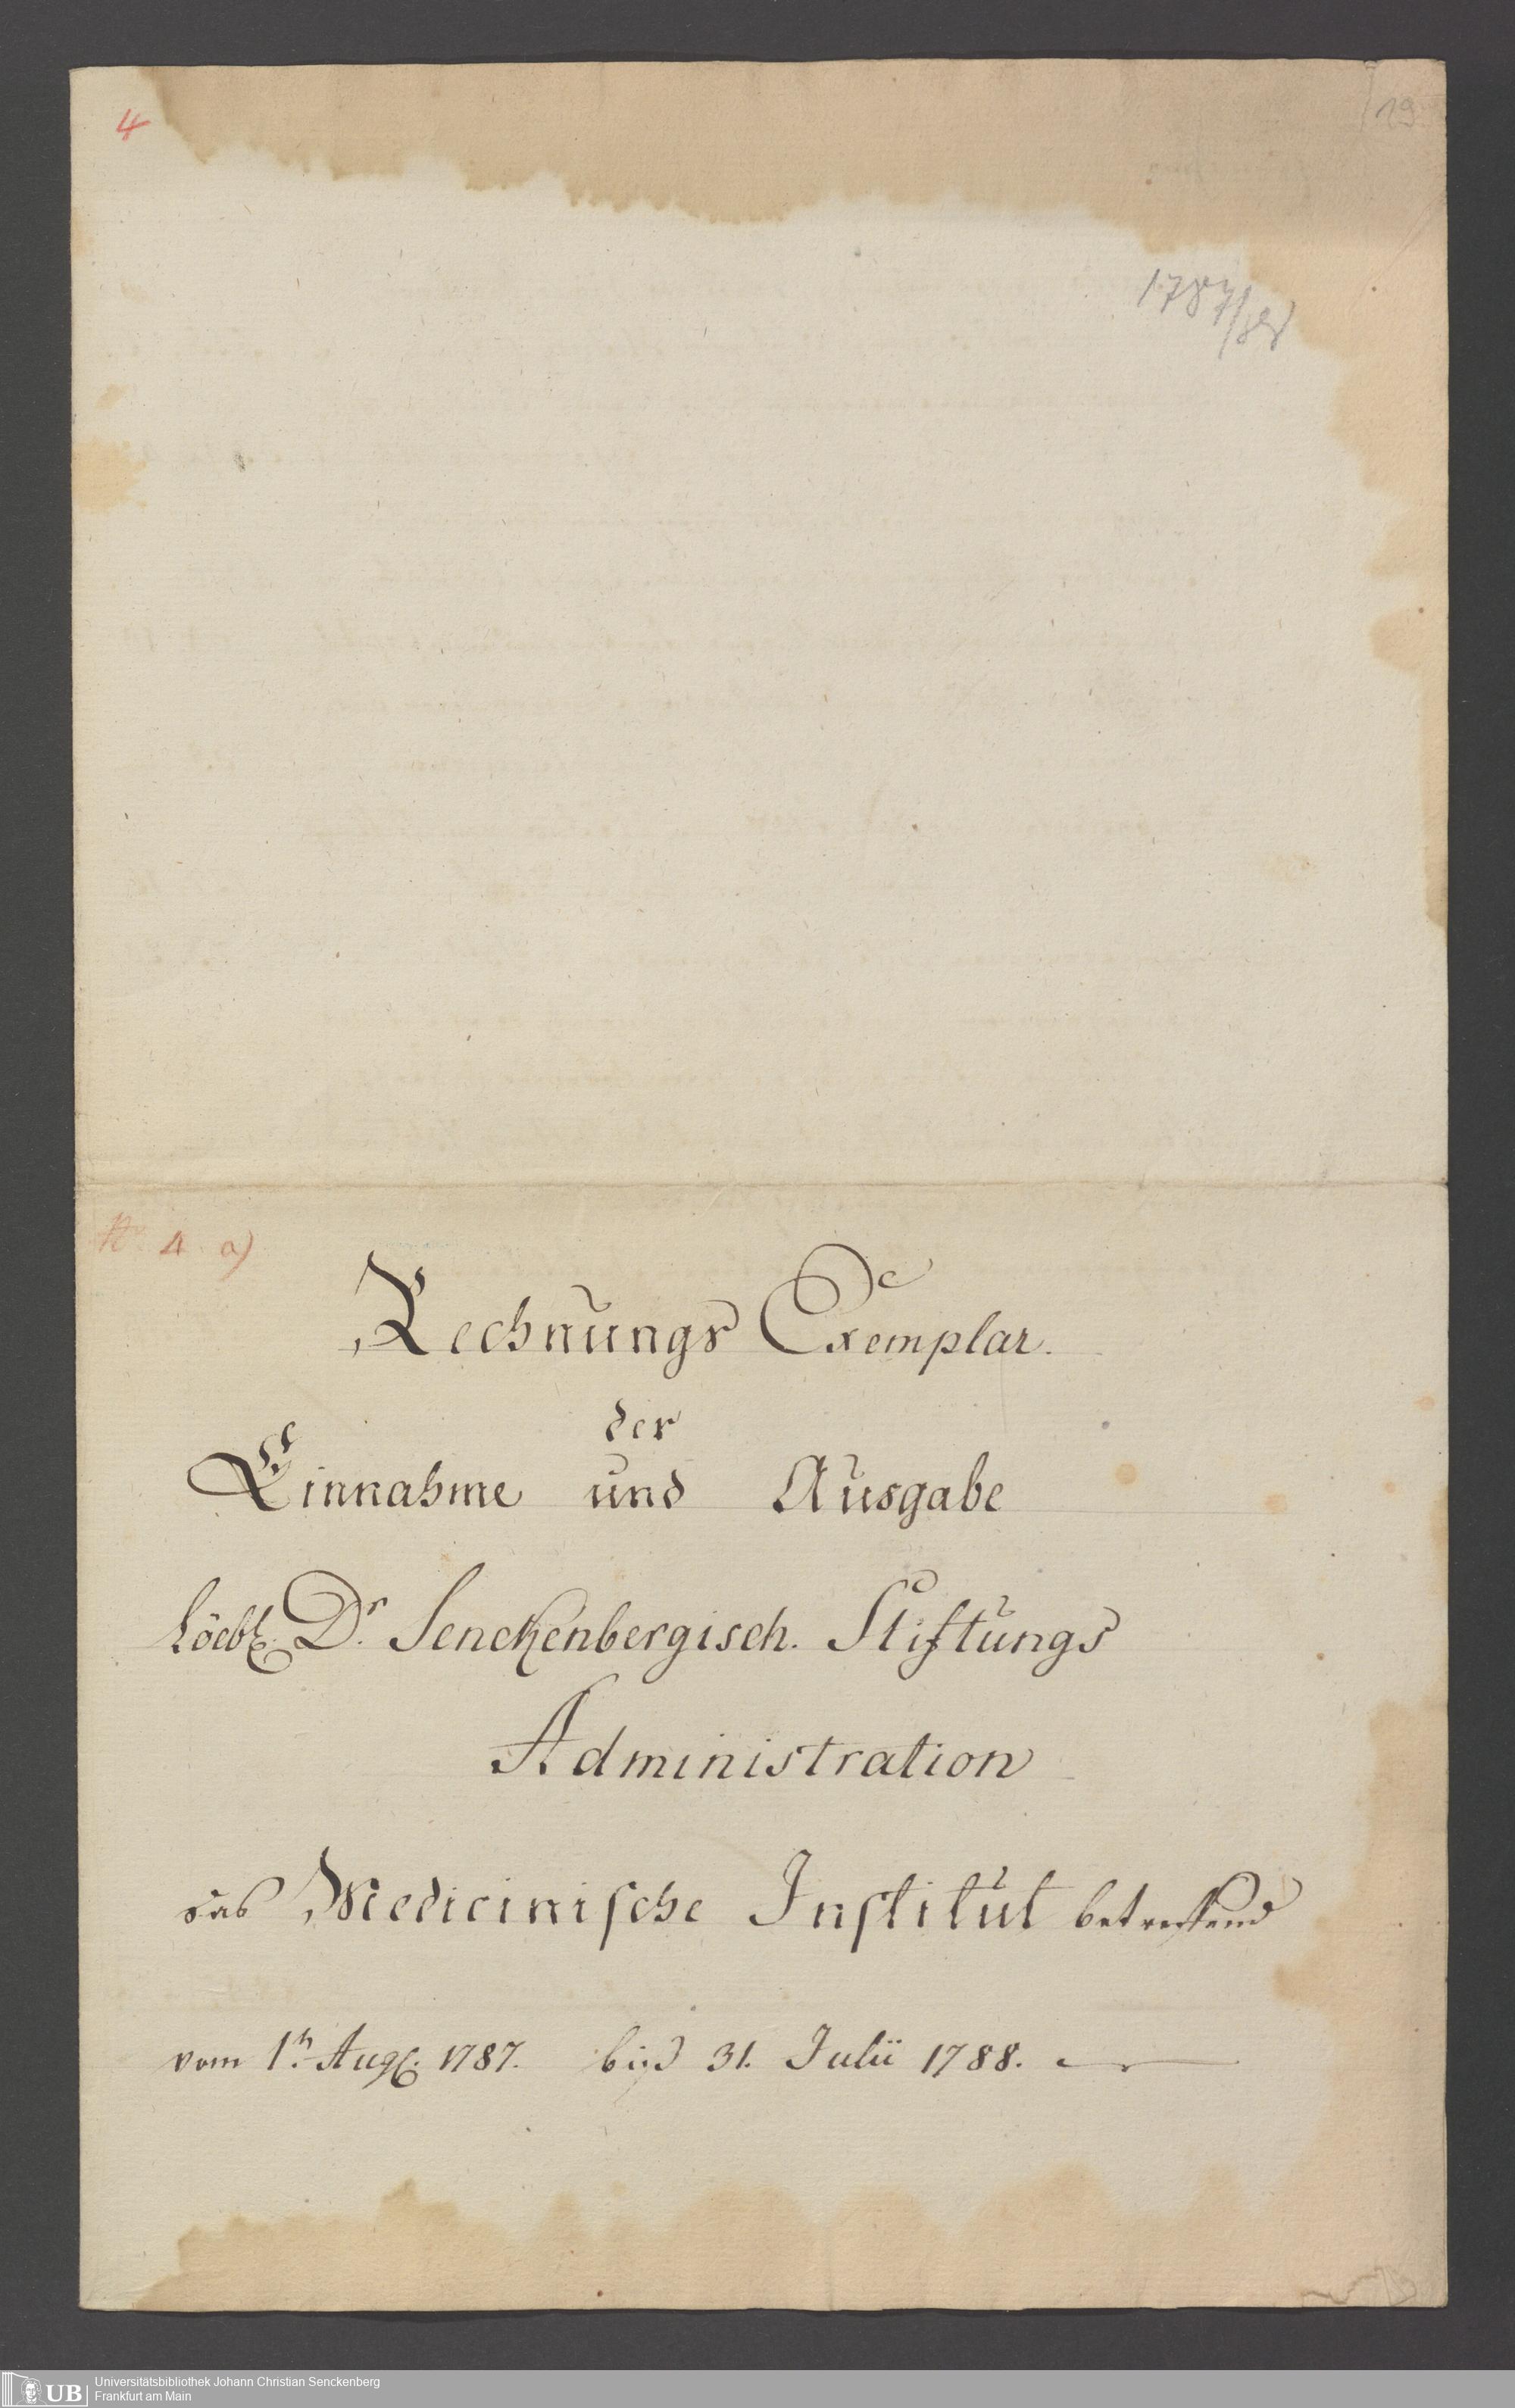 4
19
1787/88
No 4 a)
Rechnungs Exemplar.
der
Einnahme und Ausgabe
Löebl. Dr. Senckenbergisch. Stiftungs
Administration
das Medicinische Institut betreffend
vom 1n. Aug. 1787. biß 31. Julii 1788.
UB
Universitätsbibliothek Johann Christian Senckenberg
Frankfurt am Main